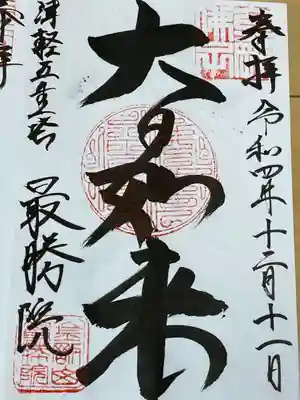 奉拝
令和四年十二月十一日
大日如来
津軽五重塔
最勝院